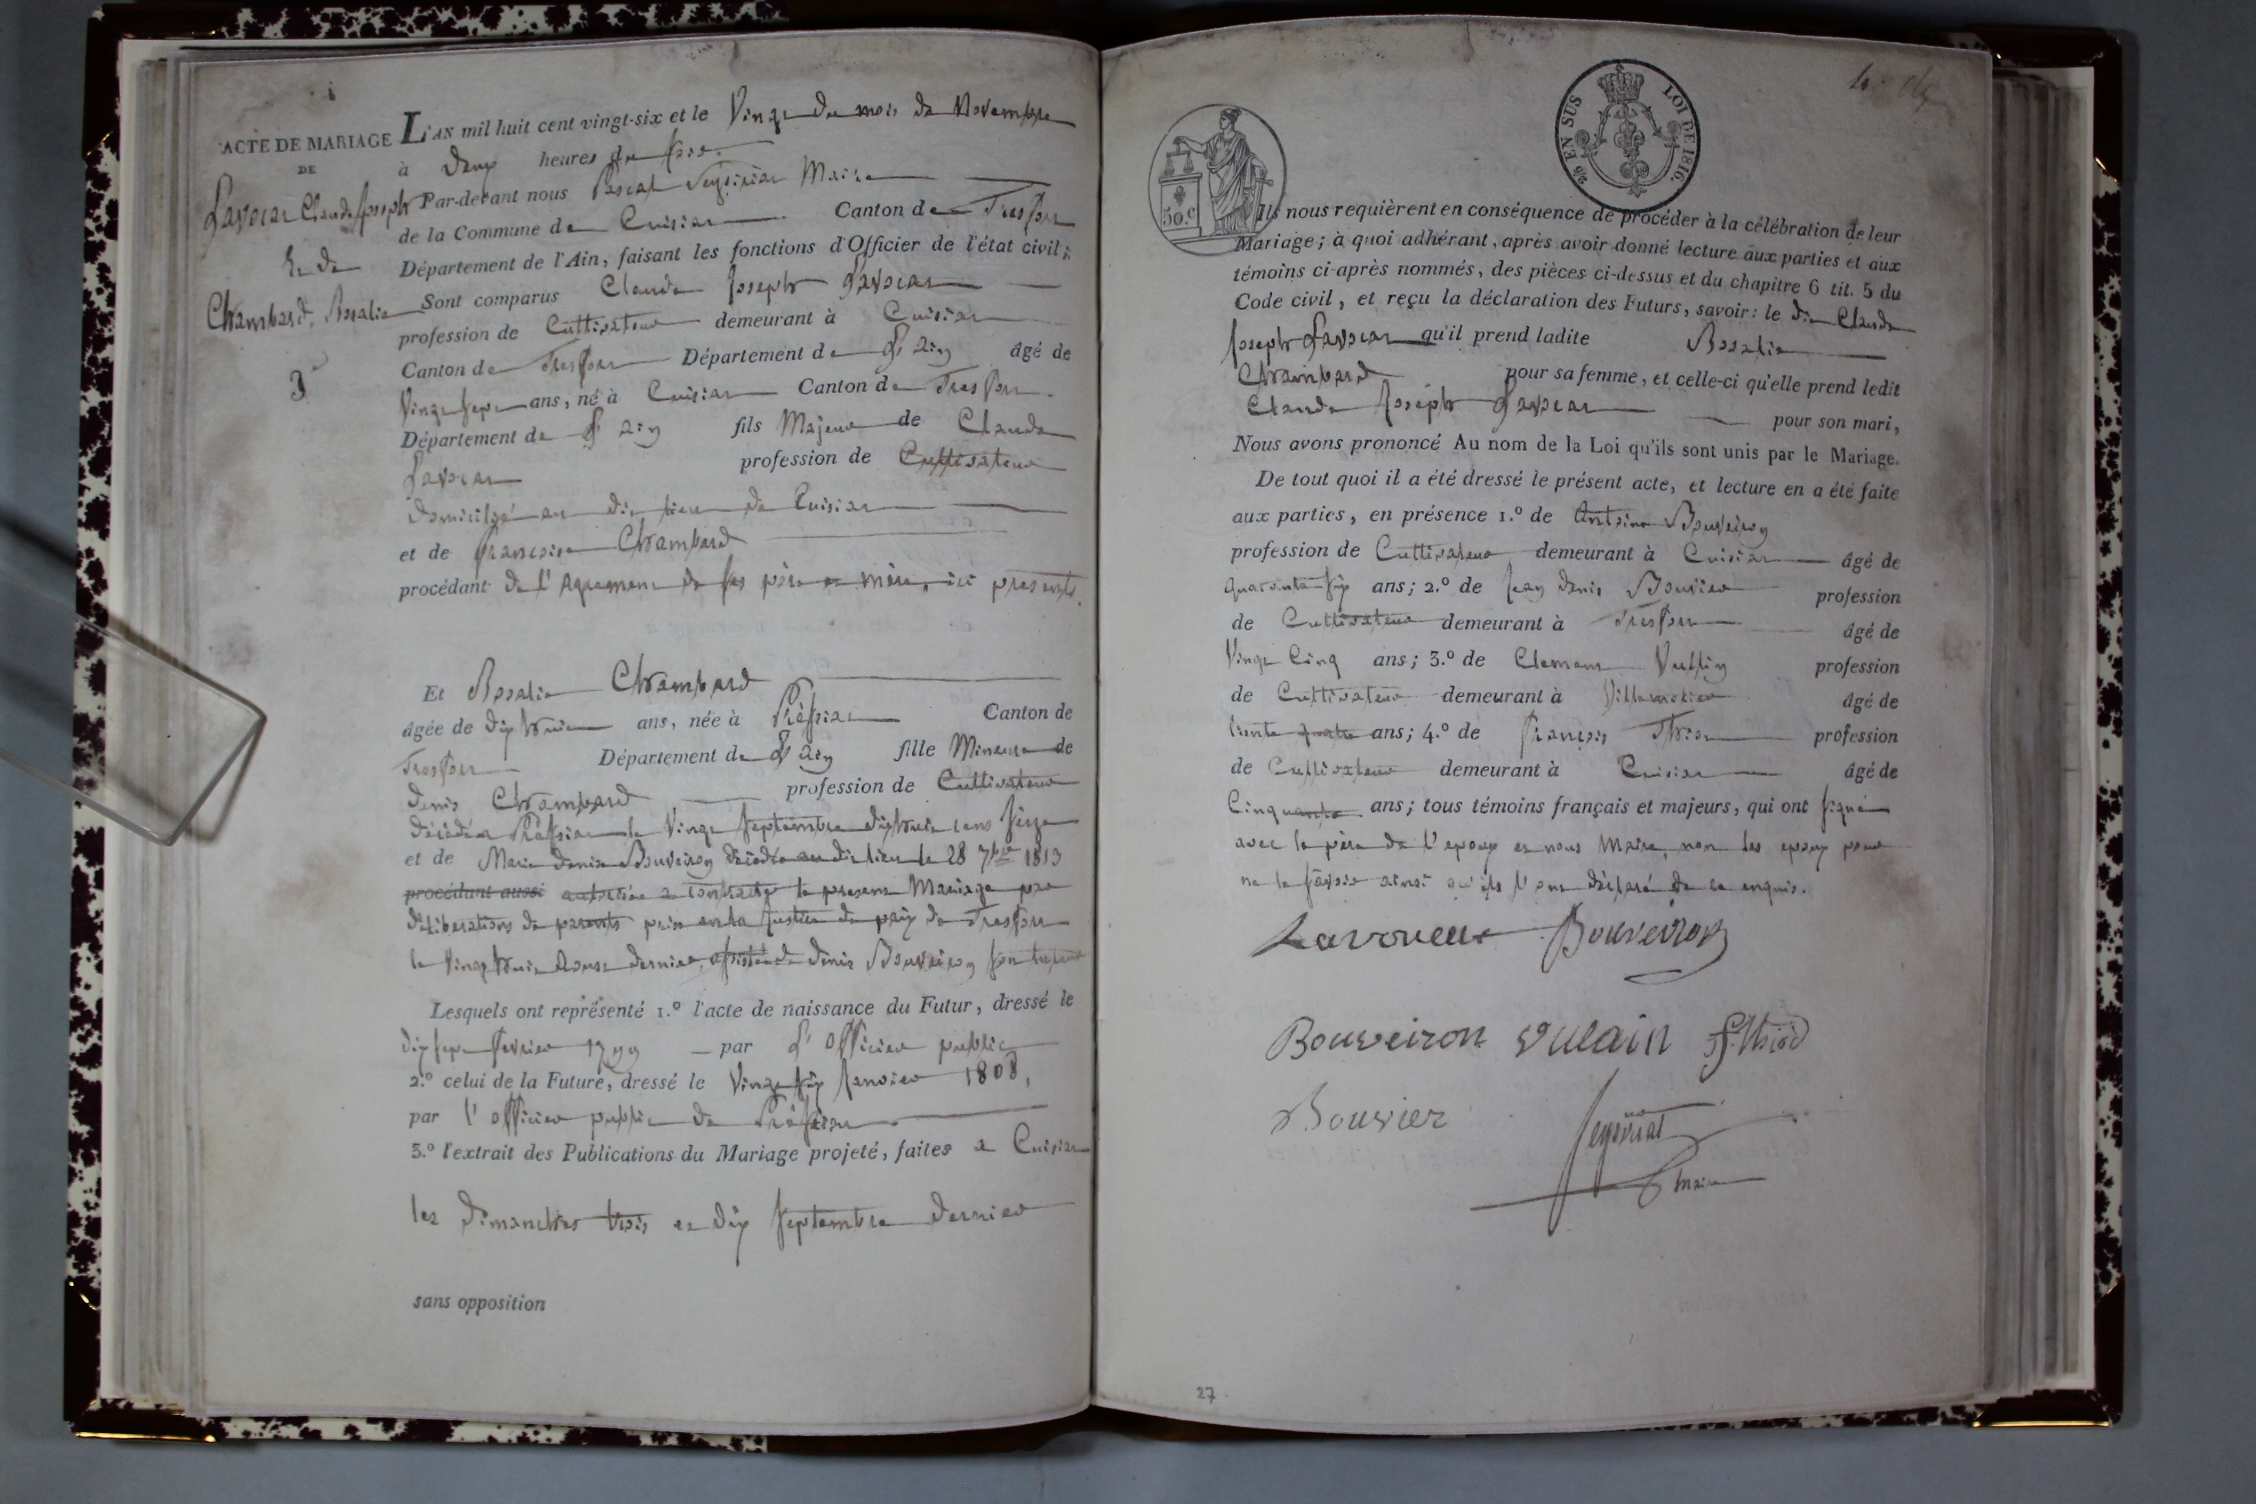 ACTE DE MARIAGE
DE
Lavocat Claude Joseph
Et de
Chambard, Rosalie
3
L'AN mil huit cent vingt-six et le Vingt du mois de Novembre
à Deux heures du soir.
Par-devant nous Pascal Maire
de la Commune de Cuisiat Canton de Treffort
Département de l'Ain, faisant les fonctions d'Officier de l'état civil;
Sont comparus Claude Joseph Lavocat
profession de Cultivateur demeurant à Cuisiat
Canton de Treffort Département de L'ain âgé de
Vingt sept ans, né à Cuisiat Canton de Treffort
Département de L'ain fils Majeur de Claude
Lavocat profession de Cultivateur
domicilié au dit lieu de Cuisiat
et de Françoise Chambard
procédant de l'agrement de ses père et mère, ici presents.
Et Rosalie Chambard
âgée de dix huit ans, née à Préssiat Canton de
Treffort Département de L'ain fille Mineure de
denis Chambard profession de Cultivateur
décédé a Préssiat le Vingt Septembre dix huit cens seize
et de Marie denise Bouveiron décédée au dit lieu le 28 7bre 1813
procédant aussi autorisée a contracter le present Mariage par
déliberations de parents prise en la justice de paix de Treffort
le Vingt huit Aoust dernier, assistée de denis Bouveiron son tuteur
Lesquels ont représenté 1.º l'acte de naissance du Futur, dressé le
dix sept fevrier 1799 par L'officier public
2.º celui de la Future, dressé le Vingt six Janvier 1808,
par l'officier public de Préssiat
3.º l'extrait des Publications du Mariage projeté, faites a Cuisiat
les dimanches trois et dix Septembre dernier
sans opposition
50.C
25 EN SUS LOI DE 1816.
Ils nous requièrent en conséquence de procéder à la célébration de leur
Mariage; à quoi adhérant, après avoir donné lecture aux parties et aux
témoins ci-après nommés, des pièces ci-dessus et du chapitre 6 tit. 5 du
Code civil, et reçu la déclaration des Futurs, savoir: le dit Claude
Joseph Lavocat qu'il prend ladite Rosalie
Chambard pour sa femme, et celle-ci qu'elle prend ledit
Claude Joseph Lavocat pour son mari,
Nous avons prononcé Au nom de la Loi qu'ils sont unis par le Mariage.
De tout quoi il a été dressé le présent acte, et lecture en a été faite
aux parties, en présence 1.º de Antoine Bouveiron
profession de Cultivateur demeurant à Cuisiat âgé de
quarante six ans; 2.º de Jean denis Bouvier profession
de Cultivateur demeurant à Treffort âgé de
Vingt Cinq ans; 3.º de Clement profession
de Cultivateur demeurant à Villemotier âgé de
trente quatre ans; 4.º de françois profession
de Cultivateur demeurant à Cuisiat âgé de
Cinquante ans; tous témoins français et majeurs, qui ont signé
avec le père de l'epoux et nous Maire, non les epoux pour
ne le savoir ainsi qu'ils l'ont déclaré de ce enquis.
Bouveiron
Bouveiron
Bouvier
maire
27